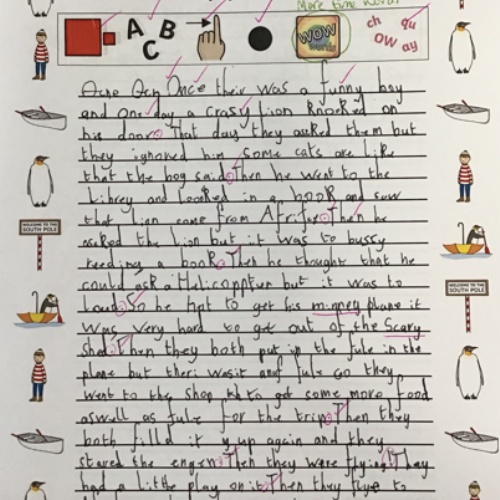 More time words
A B C
WOW words
ch qu
ow ay
Once their was a funny boy
and one day a crasy Lion knoked on
his door. That day they asked them but
they ignoned him. Some cats are Like
that the boy said. Then he went to the
Librey and Looked in a book and saw
that Lion came from Afrifue. Then he
asked the Lion but it was to bussy
reeding a book. Then he thought that he
could ask a Helicoppter but it was to
Loud. So he hpt to get his minney plane it
was very hard to get out of the scary
shed. Then they both put in the fule in the
plane but theri wasit anuf fule so they
went to the shop to get some more food
aswell as fule for the trip. Then they
both filld it up again and they
stared the engen. Then they were flying. They
had a little play on it. Then they flye to
WELCOME TO THE
SOUTH POLE
WELCOME TO THE
SOUTH POLE